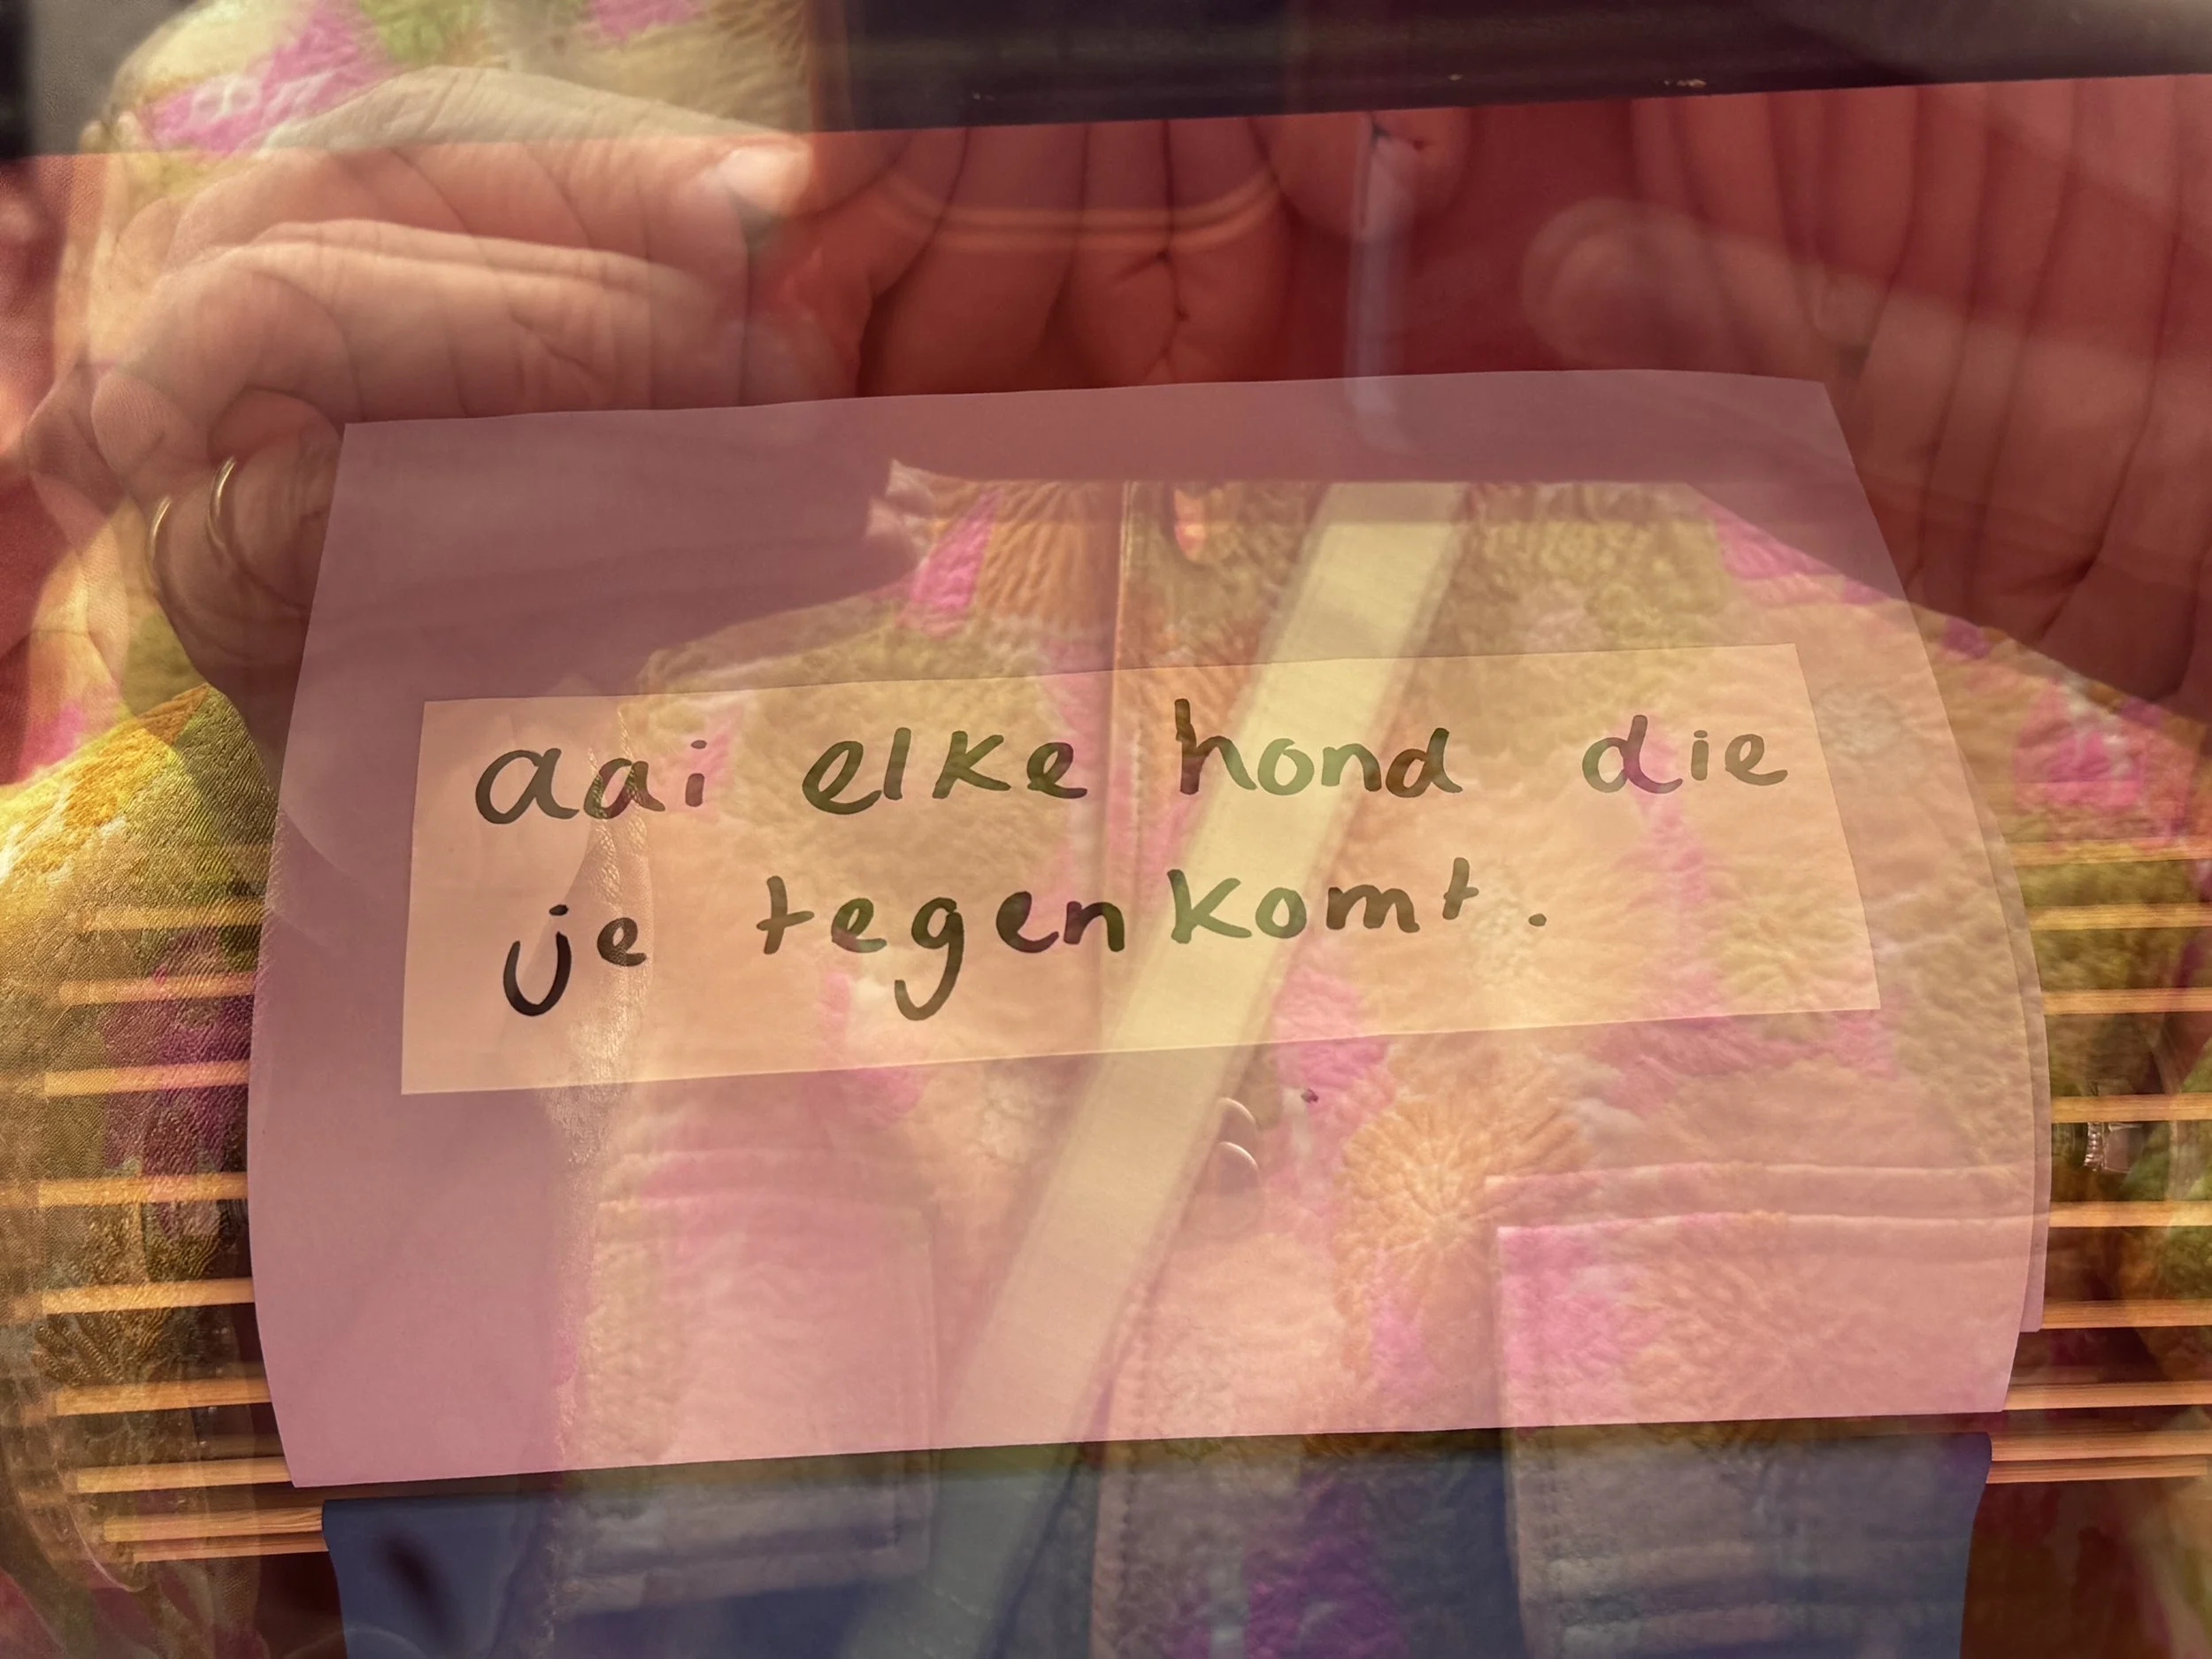 aai elke hond die
je tegenkomt.